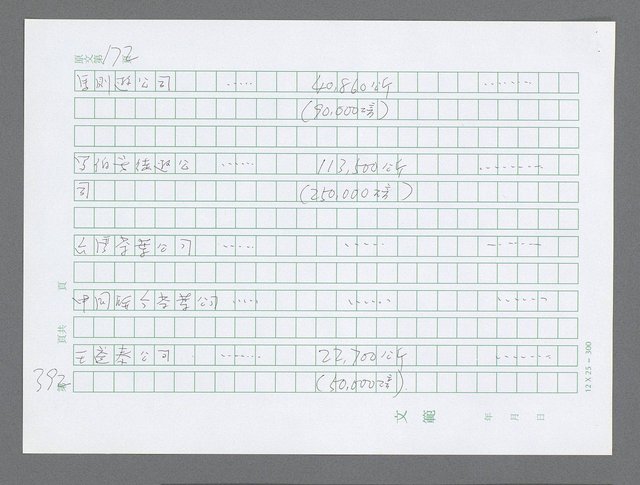 原文第172頁
公司 …… 40,860公斤 ……
(90,000磅)
公 …… 113,500公斤 ……
司 (250,000磅)
台灣茶葉公司 …… …… ……
中國聯合茶葉公司 …… …… ……
公司 …… 22,700公斤 ……
(50,000磅)
頁
頁共
392
第
12 X 25 — 300
文 範
年 月 日